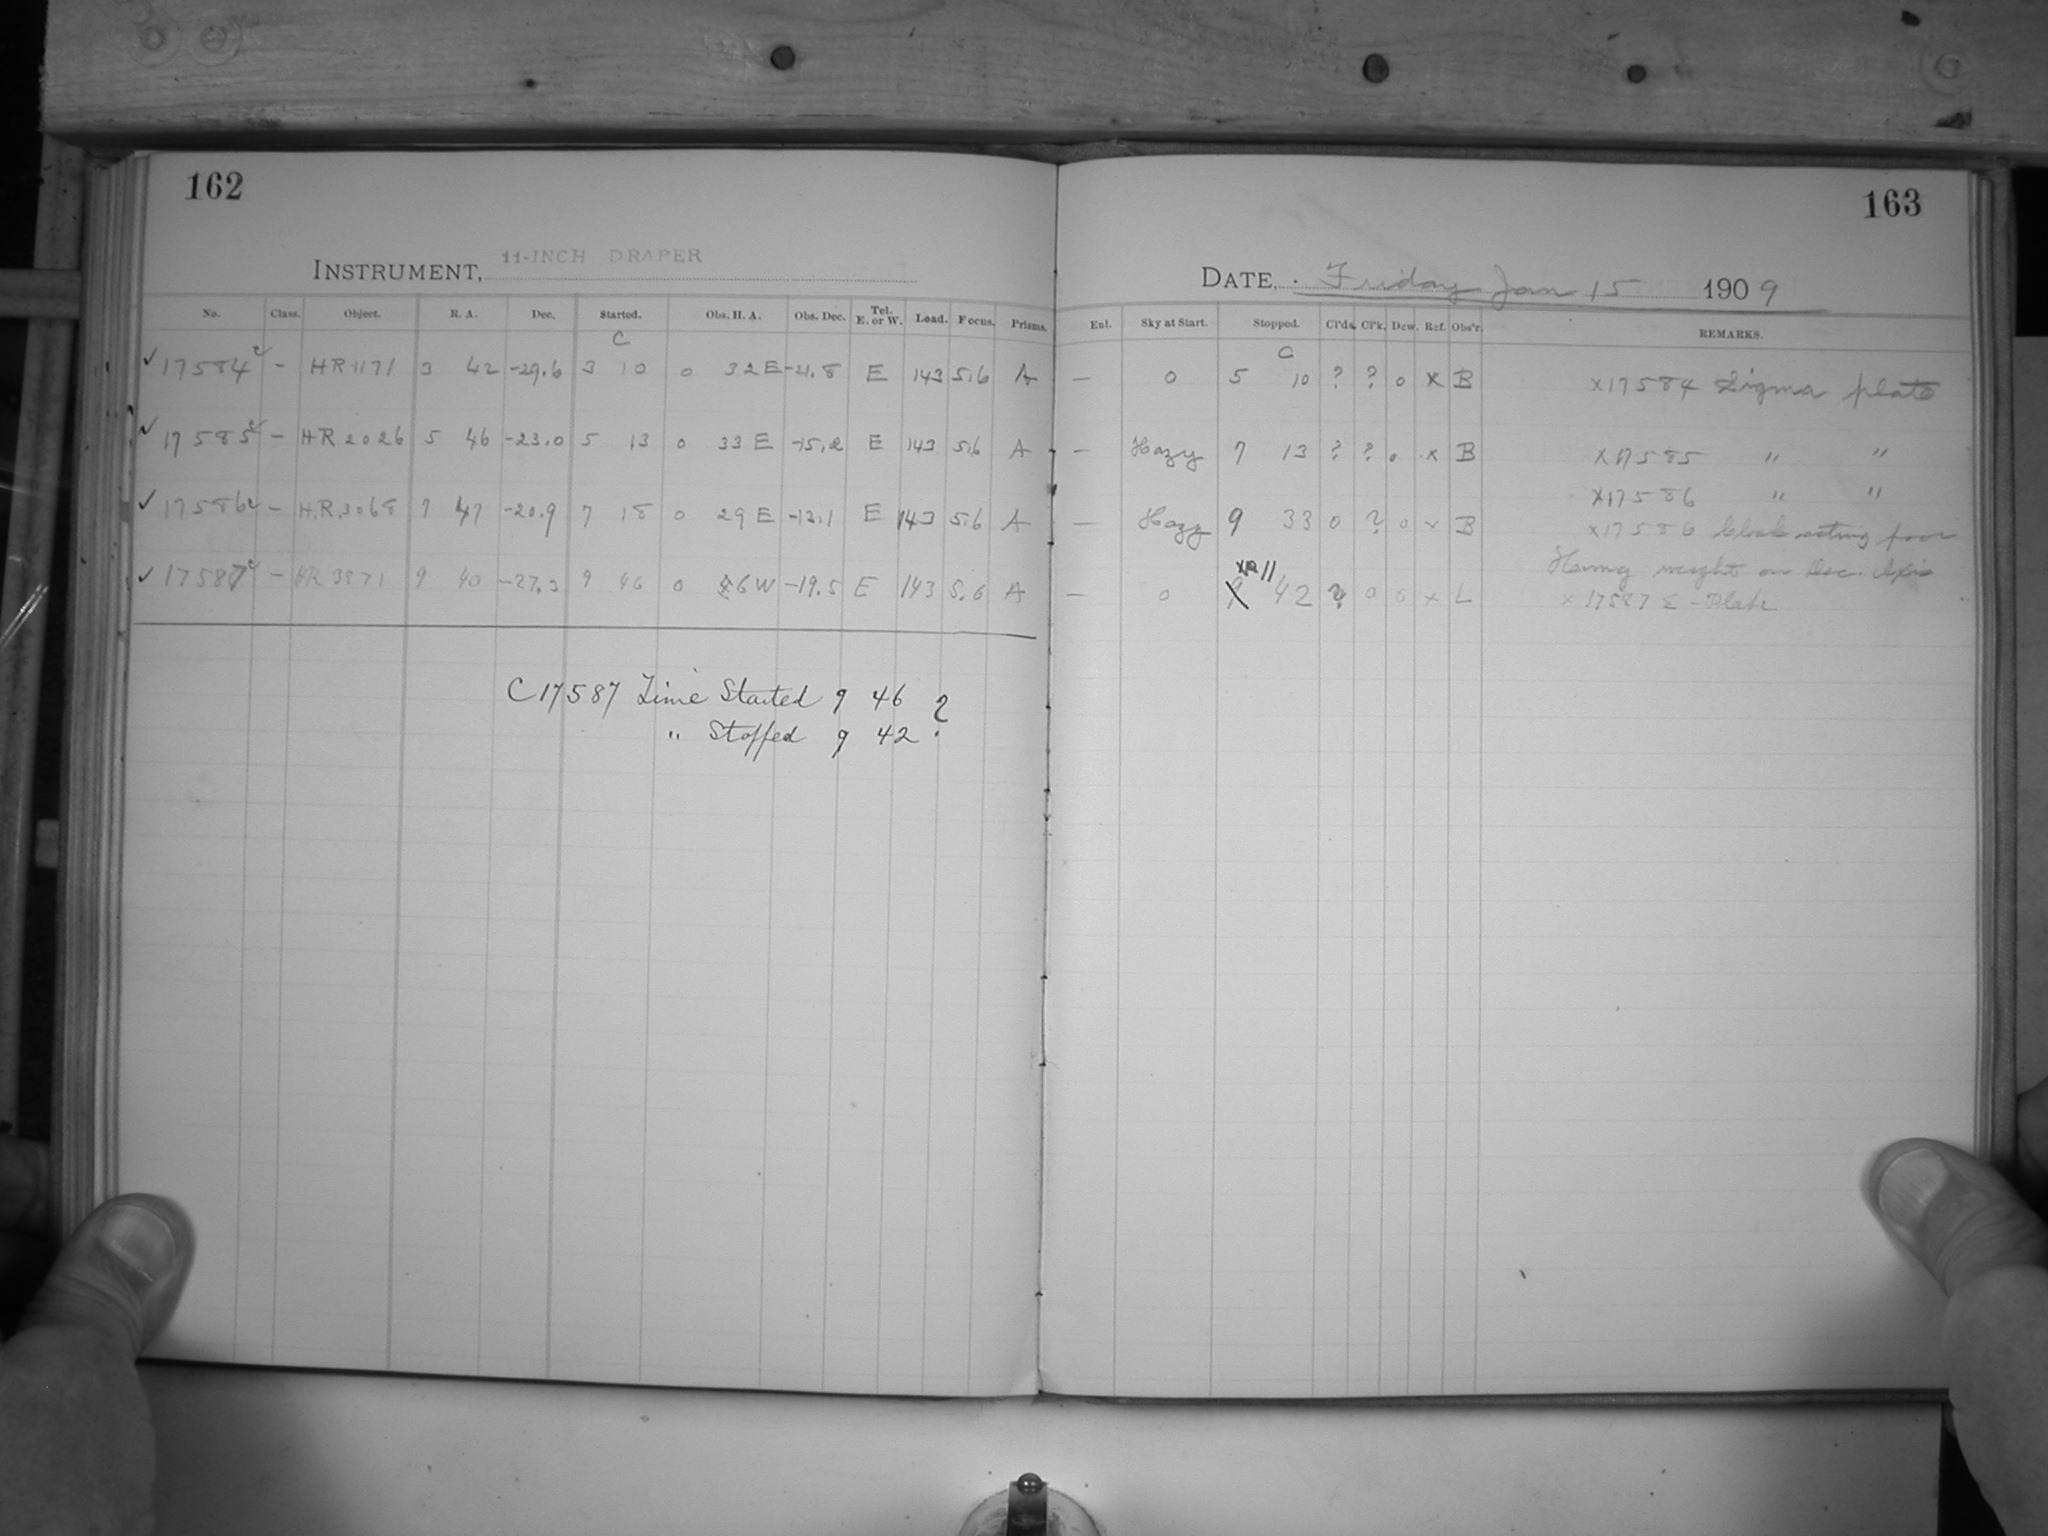 162
INSTRUMENT, 11-INCH DRAPER
No. Class. Object. R. A. Dec. Started. Obs. H. A. Obs. Dec. Tel. E. or W. Load. Focus. Prisms.
C
✓ 17584 – HR 1171 3 42 -29.6 3 10 0 32 E -21.8 E 143 5.6 A
✓ 17585 – HR 2026 5 46 -23.0 5 13 0 33 E -15.2 E 143 5.6 A
✓ 17586 – H.R. 3068 7 47 -20.9 7 18 0 29 E -13.1 E 143 5.6 A
✓ 17587 – HR 3871 9 40 -27.3 9 46 0 6 W -19.5 E 143 5.6 A
C 17587 Time Started 9 46 ?
" Stopped 9 42
163
DATE, Friday Jan 15 1909
Enl. Sky at Start. Stopped. Cl'ds. Cl'k. Dew. Ref. Obs'r. REMARKS.
C
— 0 5 10 ? ? 0 x B x17584 Sigma plate
— Hazy 7 13 ? ? 0 x B x17585 " "
x17586 " "
— Hazy 9 33 0 ? 0 x B x17586 Clock acting poor
Hanng weight on Dec. Axis
— 0 9 11 42 ? 0 0 x L x 17587 Σ - Plate